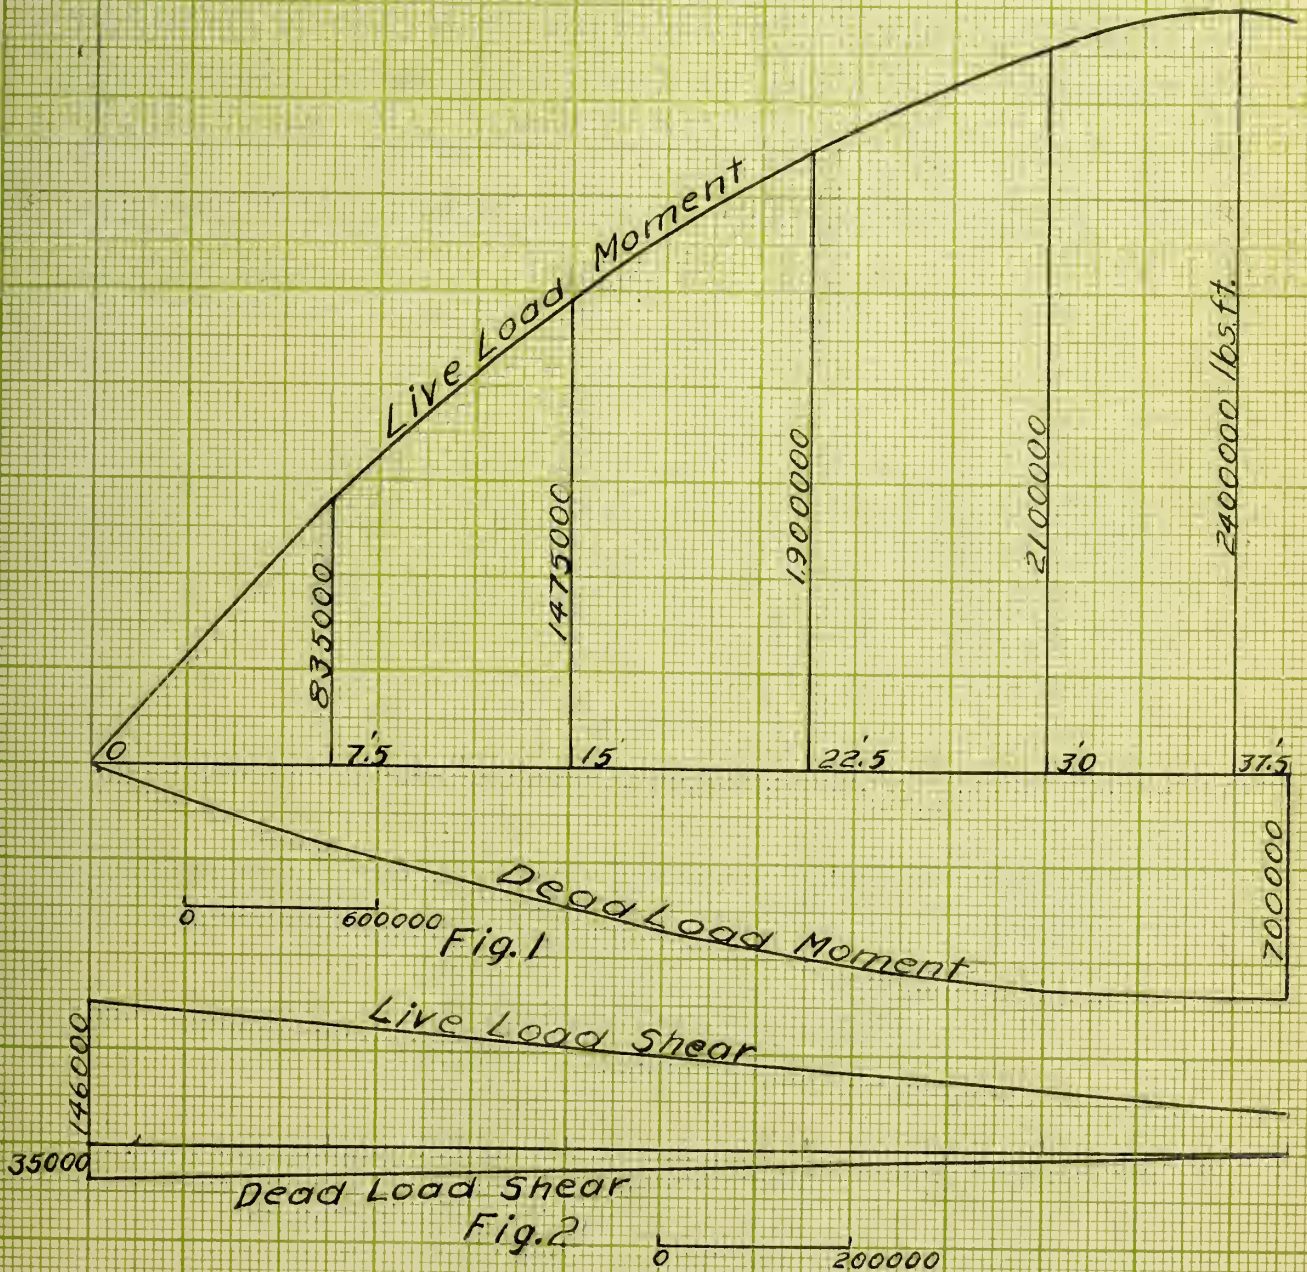 Live Load Moment
835000
1475000
1900000
2100000
2400000 lbs.ft.
0
7.'5
15'
22.'5
30'
37.'5
Dead Load Moment
700000
0
600000
Fig.1
Live Load Shear
146000
35000
Dead Load Shear
Fig.2
0
200000